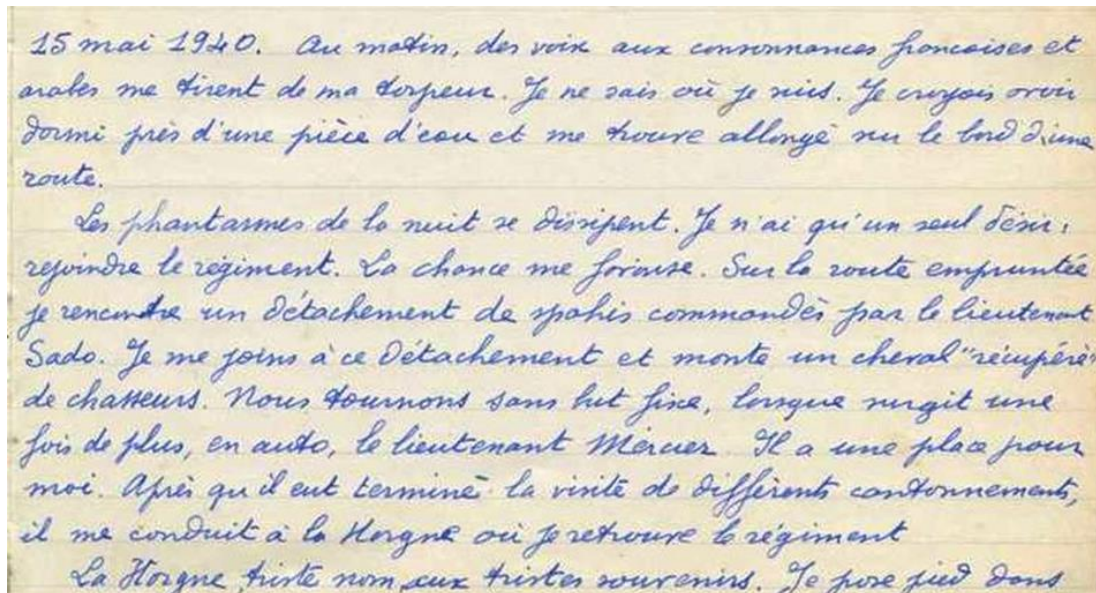 15 mai 1940. Au matin, des voix aux consonnances françaises et
arabes me tirent de ma torpeur. Je ne sais où je suis. Je croyais avoir
dormi près d'une pièce d'eau et me trouve allongé sur le bord d'une
route.
Les phantasmes de la nuit se dissipent. Je n'ai qu'un seul désir,
rejoindre le régiment. La chance me favorise. Sur la route empruntée
je rencontre un détachement de spahis commandés par le lieutenant
Sado. Je me joins à ce détachement et monte un cheval "récupéré"
de chasseurs. Nous tournons sans but fixe, lorsque surgit une
fois de plus, en auto, le lieutenant Mercier. Il a une place pour
moi. Après qu'il eut terminé la visite de différents cantonnements,
il me conduit à la Horgne où je retrouve le régiment
La Horgne, triste nom, aux tristes souvenirs. Je pose pied dans